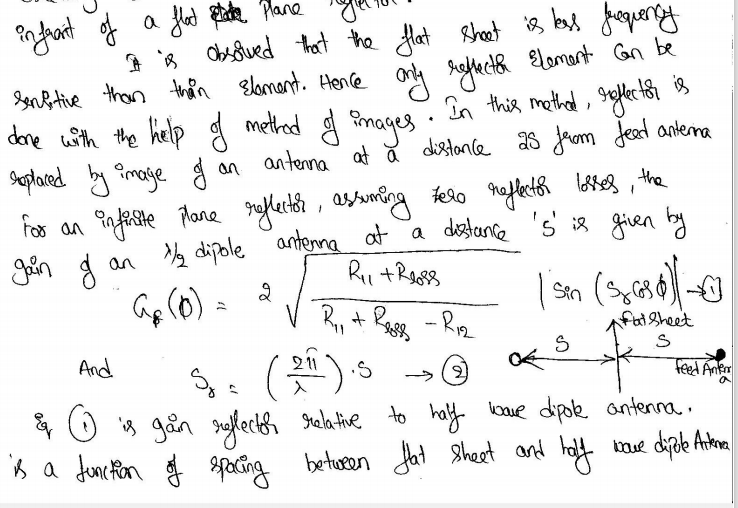 infront of a flat Plane
It is observed that the flat sheet is less frequency
sensitive than thin Element. Hence only reflector Element Can be
done with the help of method of images. In this method, reflector is
replaced by image of an antenna at a distance 2S from feed antenna
For an infinite plane reflector, assuming zero reflector losses, the
gain of an λ/2 dipole antenna at a distance 'S' is given by
Gf(ϕ) = 2 √((R11 + Rloss) / (R11 + Rloss - R12)) |Sin (Sr Cos ϕ)| → ①
Flat Sheet
S S
feed Antenna
And Sr = (2π/λ).S → ②
Eq ① is gain reflector relative to half wave dipole antenna.
is a function of spacing between flat sheet and half wave dipole Antenna